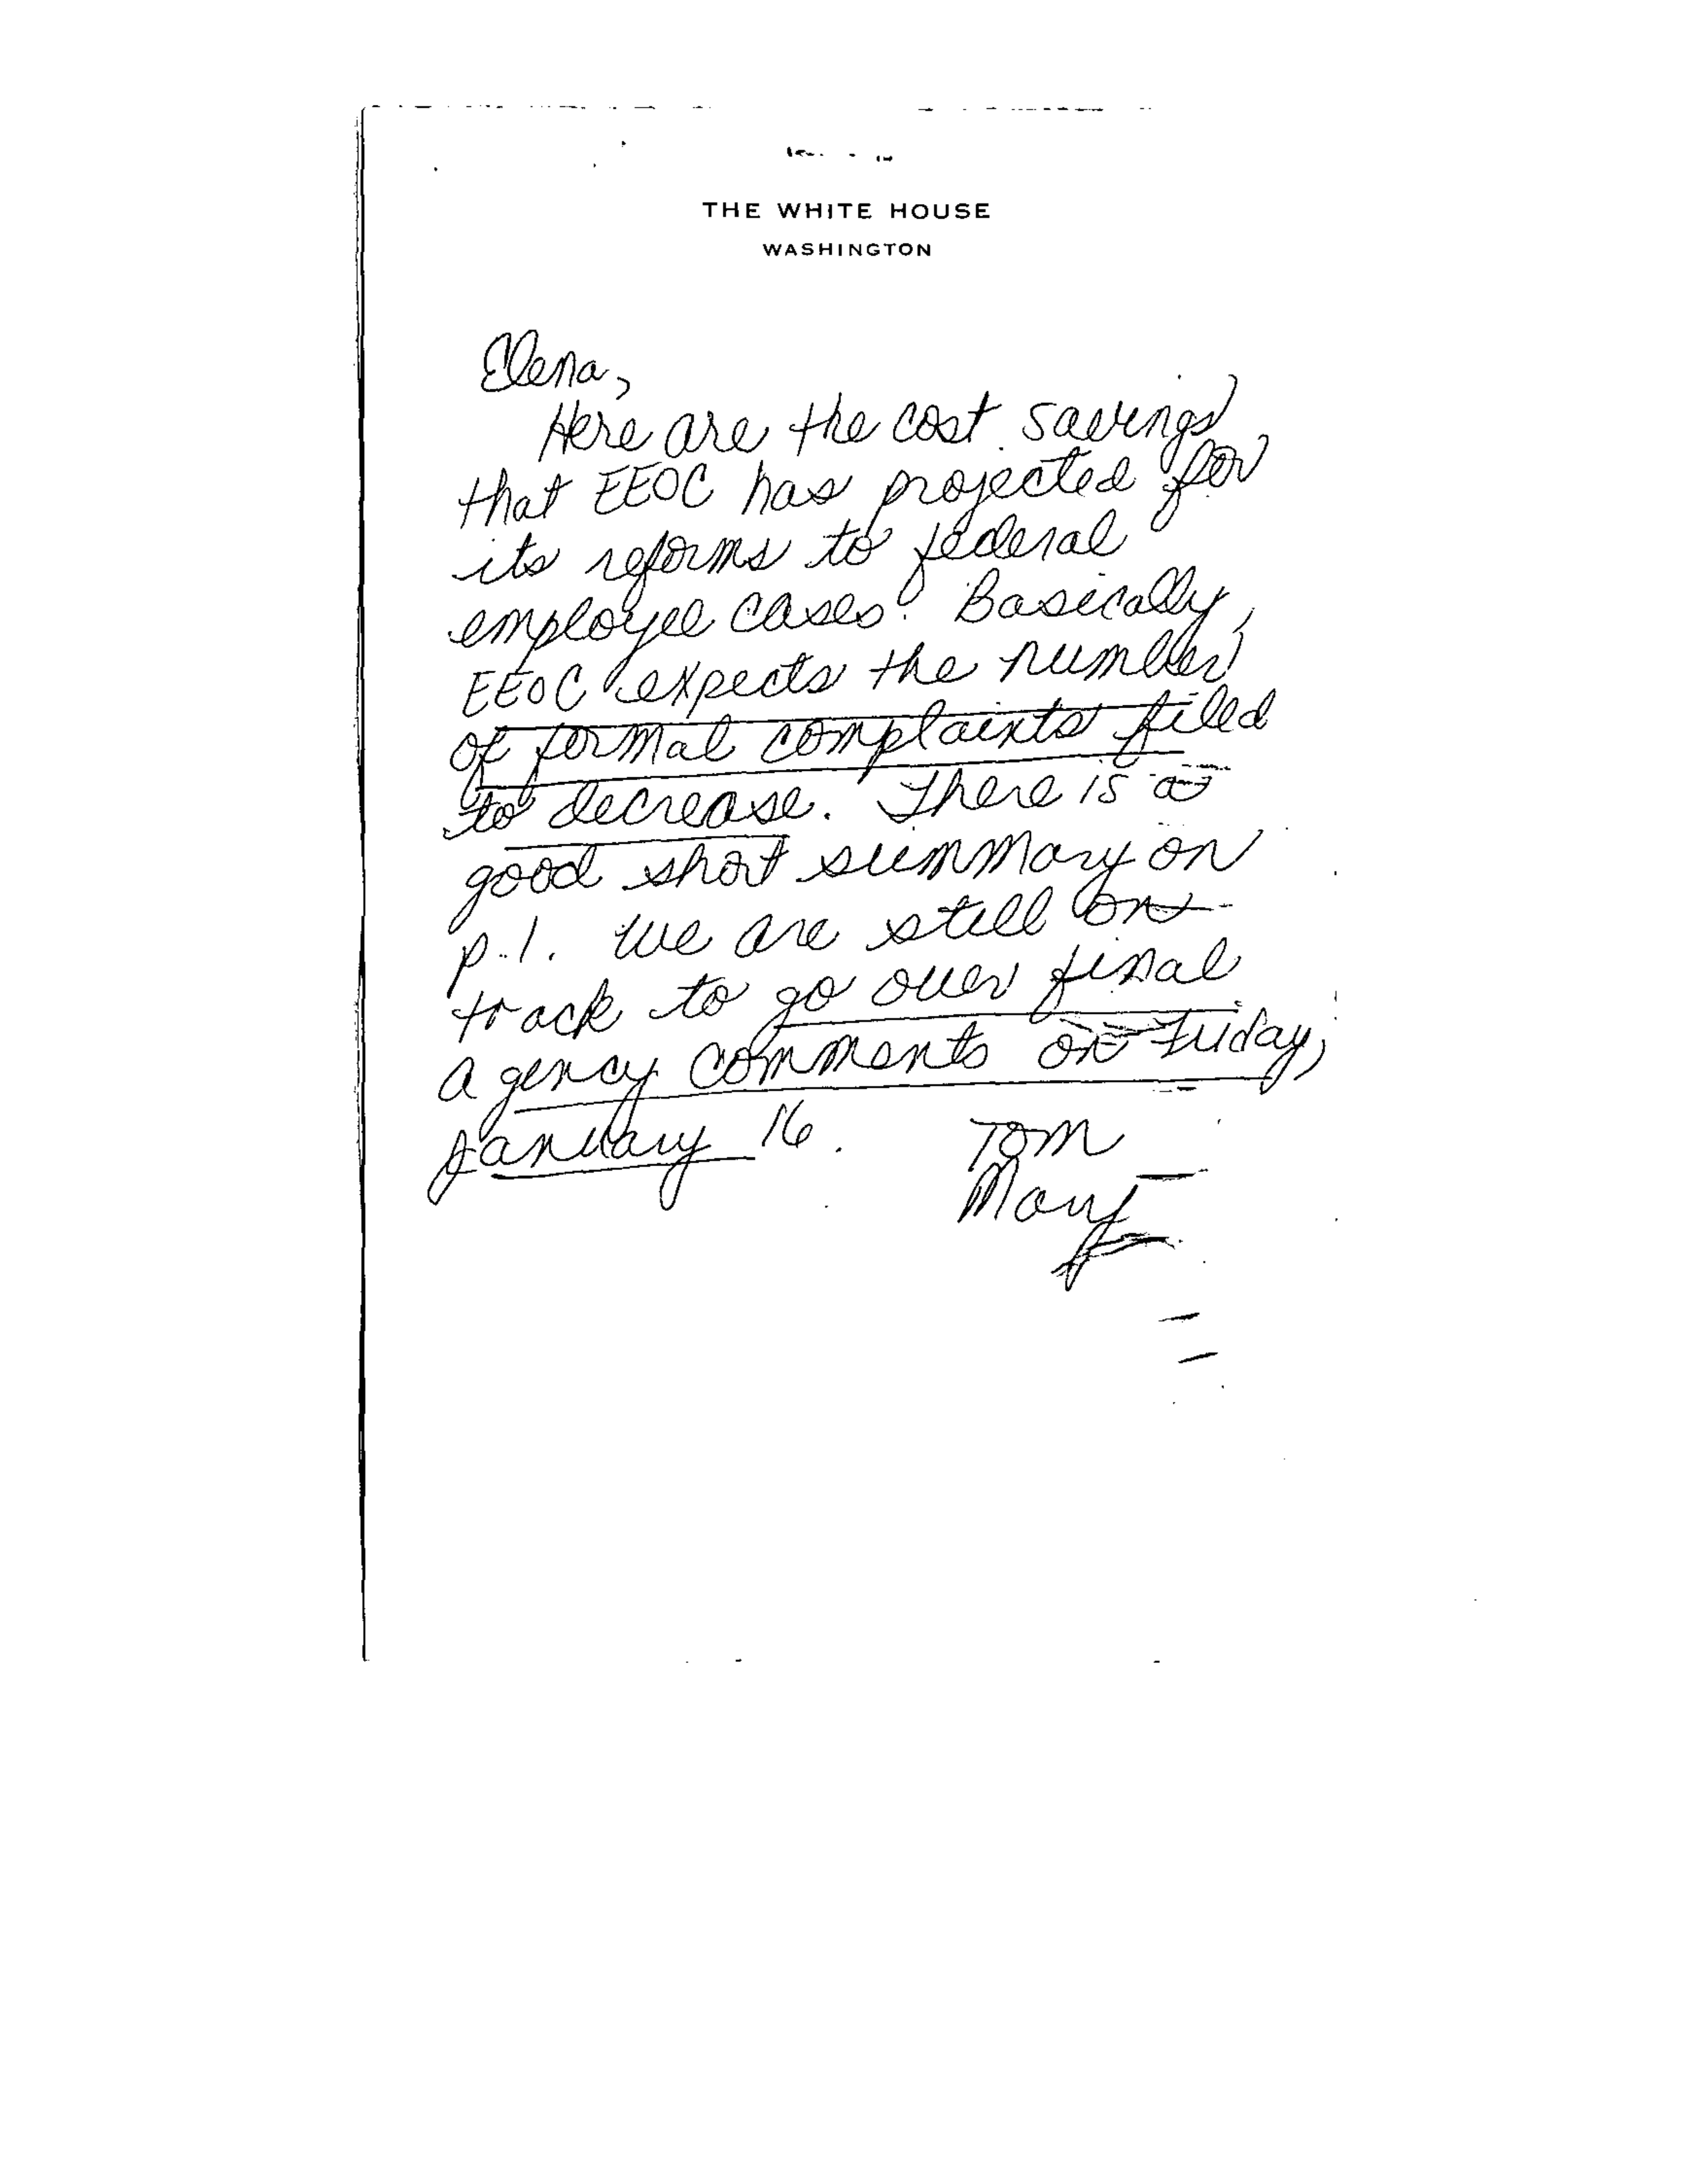 THE WHITE HOUSE
WASHINGTON
Elena,
Here are the cost savings
that EEOC has projected for
its reforms to federal
employee cases. Basically,
EEOC expects the number
of formal complaints filed
to decrease. There is a
good short summary on
p.1. We are still on
track to go over final
agency comments on Friday,
January 16.
Tom
Mary